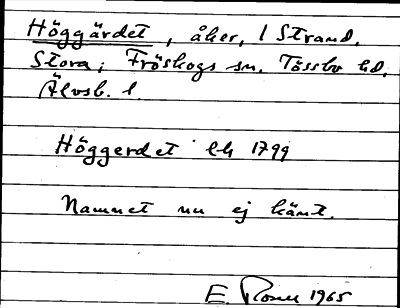 Höggärdet, åker, l Strand,
Stora; Fröskogs sn. Tössbo hd.
Älvsb. l.
Höggerdet lh 1799
Namnet nu ej känt.
E. 1965